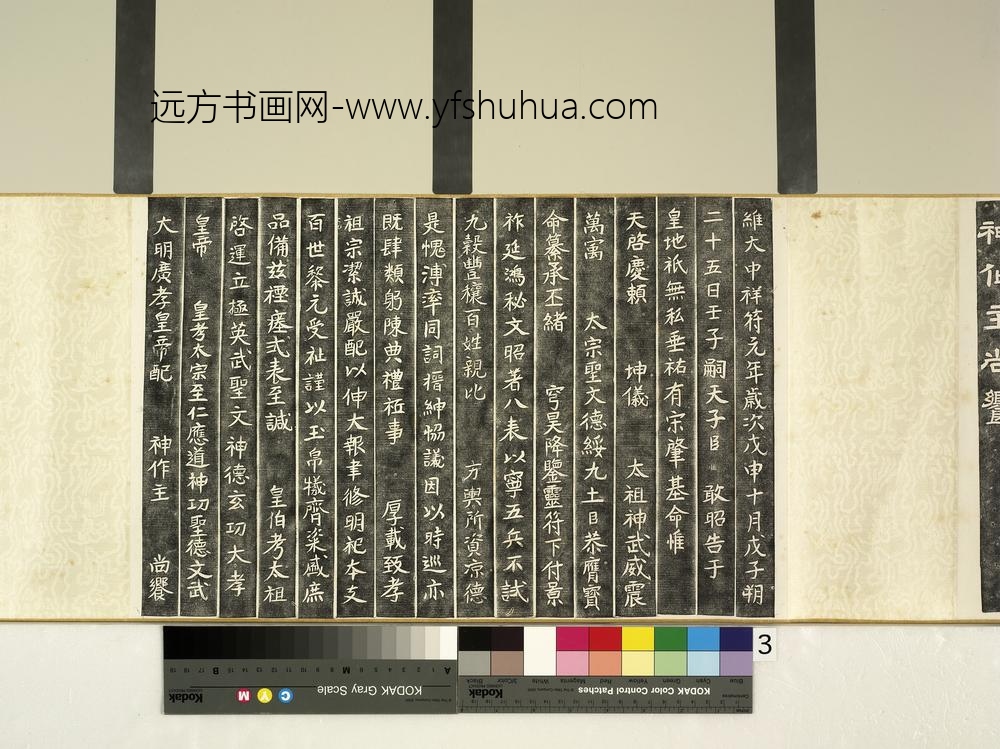 远方书画网-www.yfshuhua.com
維大中祥符元年歲次戊申十月戊子朔
二十五日壬子嗣天子臣 敢昭告于
皇地祇無私垂祐有宋肇基命惟
天啓慶賴 坤儀 太祖神武威震
萬㝢 太宗聖文德綏九土臣恭膺寶
命纂承丕緒 穹昊降鑒靈符下付景
祚延鴻秘文昭著八表以寧五兵不試
九穀豐穰百姓親比 方輿所資凉德
是愧溥率同詞搢紳恊議因以時巡亦
既肆類躬陳典禮祗事 厚載致孝
祖宗潔誠嚴配以伸大報聿修明祀本支
百世黎元受祉謹以玉帛犧齊粢盛庶
品備兹禋瘞式表至諴 皇伯考太祖
啓運立極英武聖文神德玄功大孝
皇帝 皇考太宗至仁應道神功聖德文武
大明廣孝皇帝配 神作主 尚饗
神作主尚饗
3
KODAK Gray Scale
C Y M
Kodak
A 1 2 3 4 5 6 M 8 9 10 11 12 13 14 15 B 17 18 19
KODAK Color Control Patches
Blue Cyan Green Yellow Red Magenta White 3/Color Black
Kodak